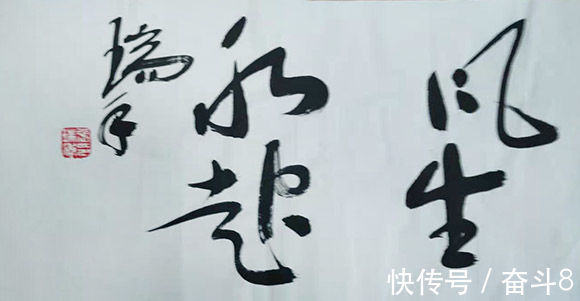 风生
水起
瑞
快传号 / 奋斗8